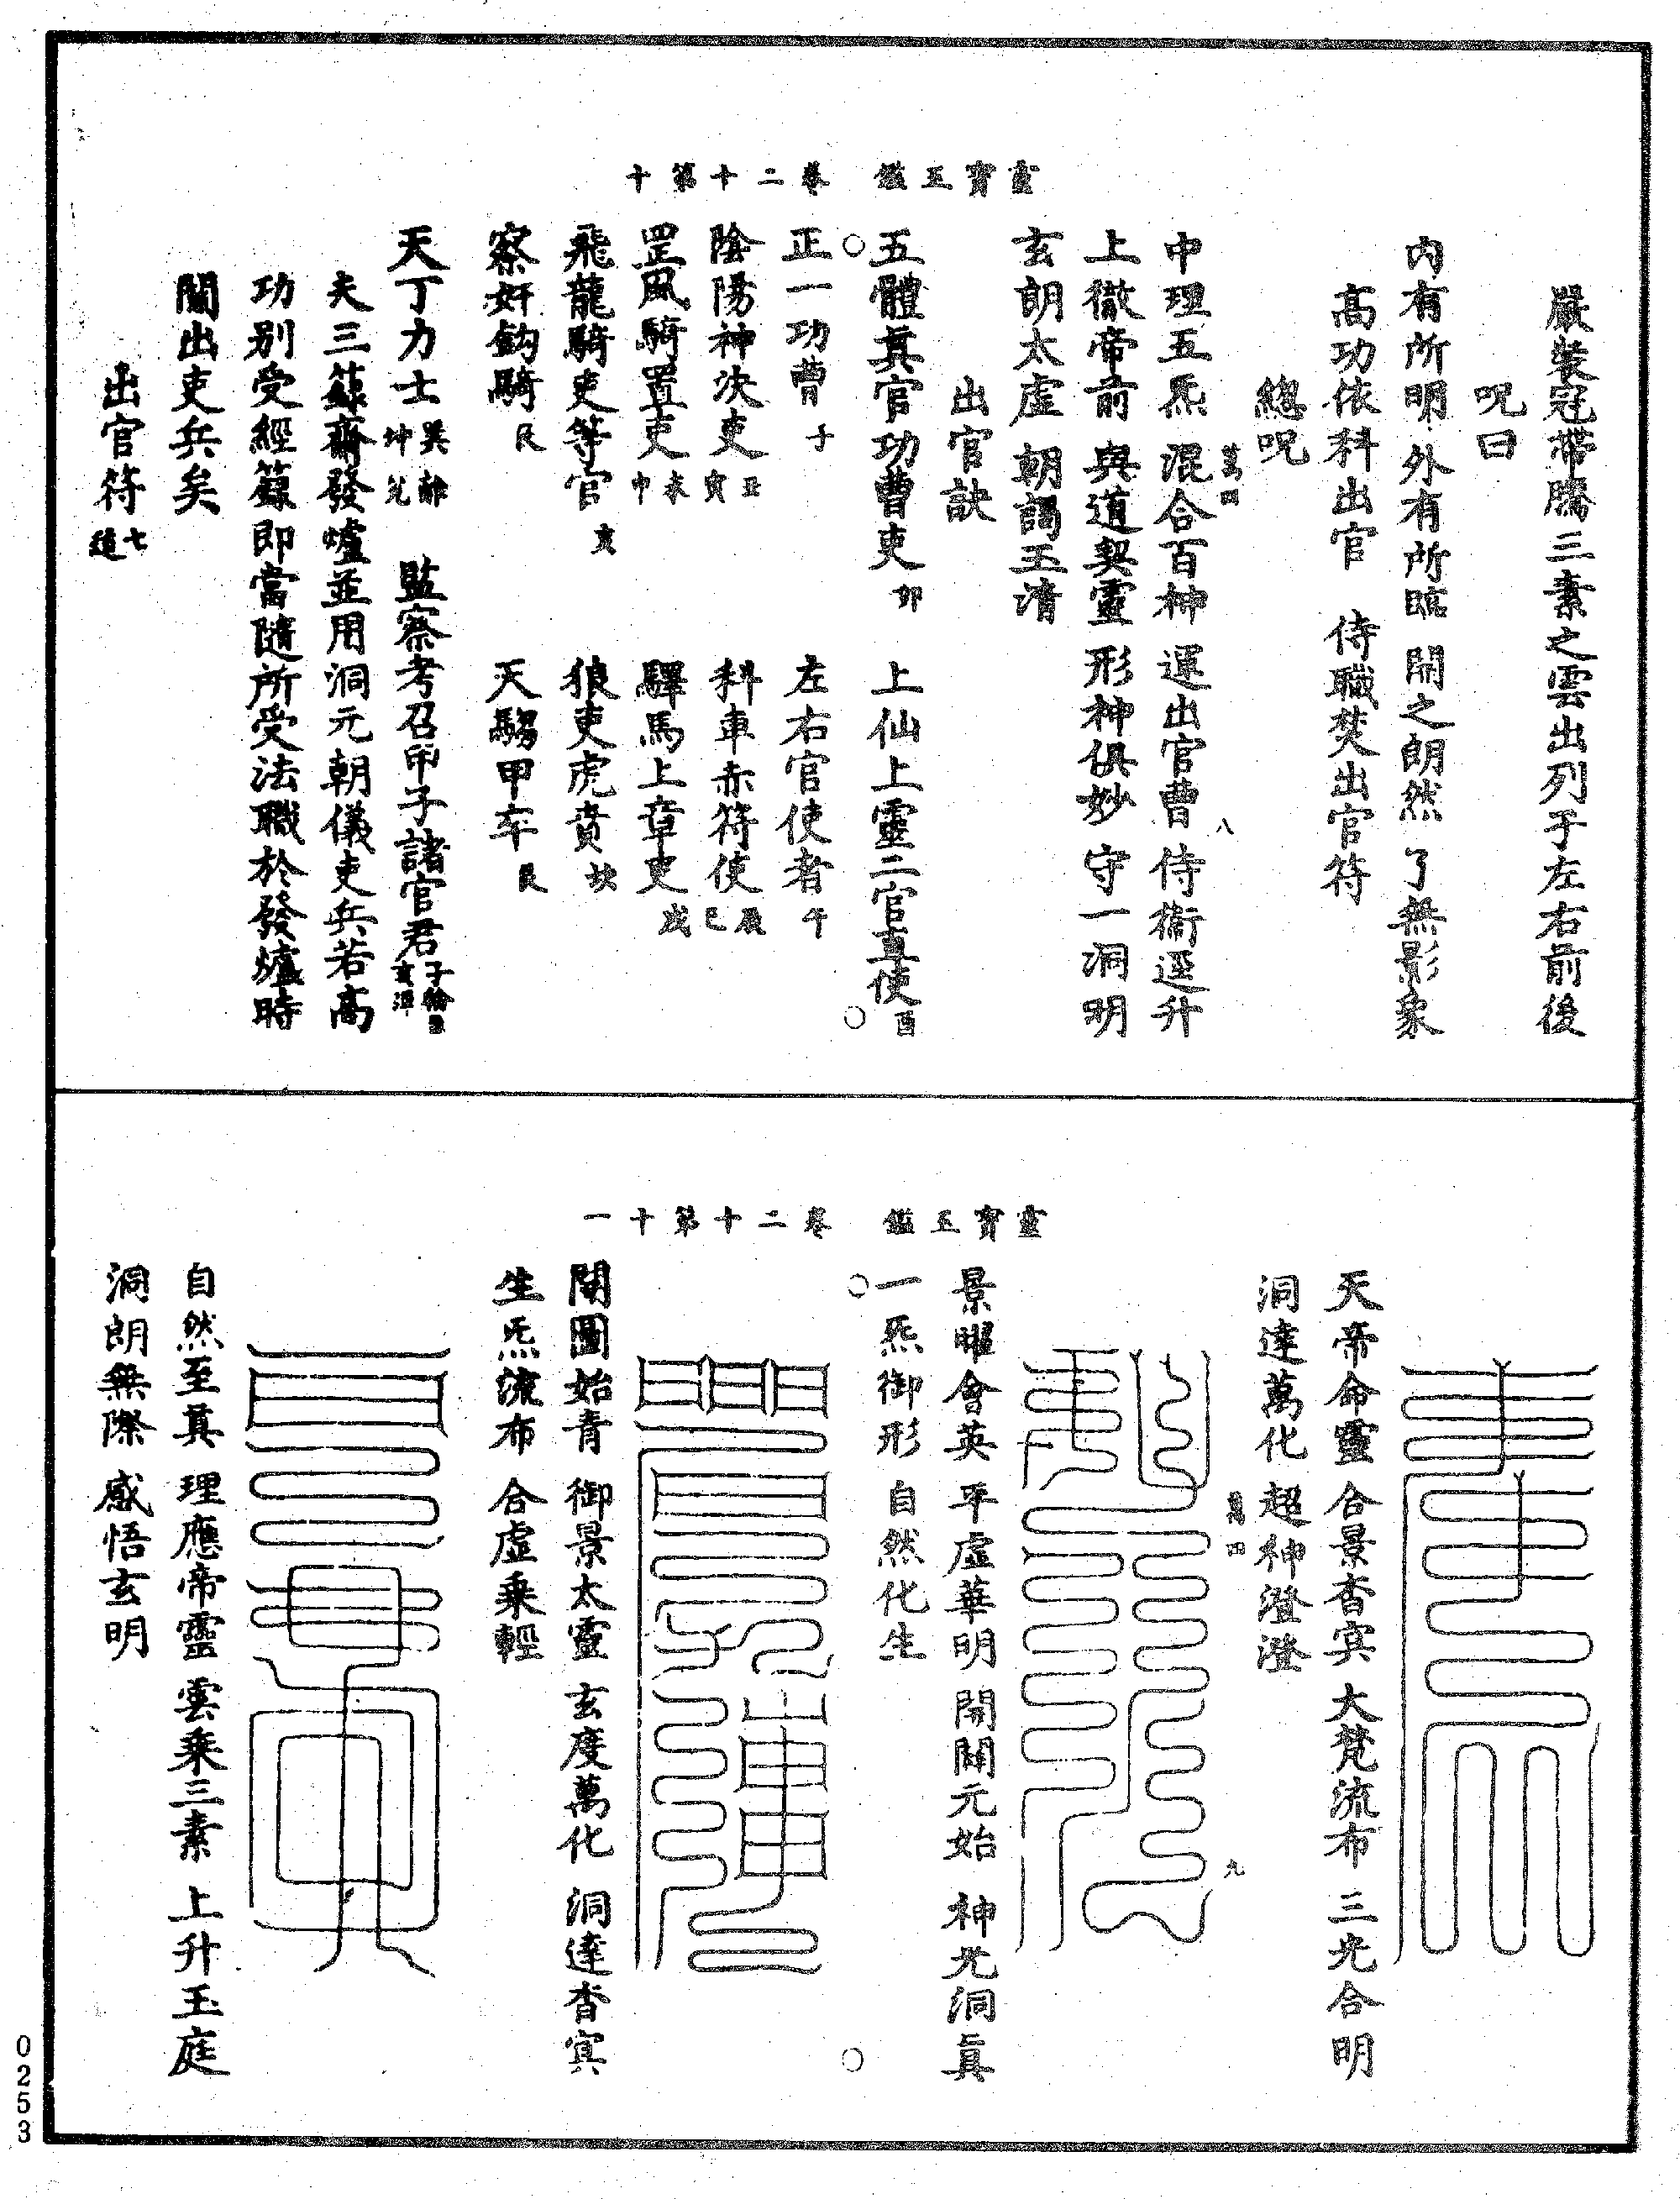 靈寶玉鑑　卷二十第十
嚴裝冠帶騰三素之雲出列于左右前後
呪曰
内有所明　外有所臨　開之朗然　了無影象
高功依科出官　侍職焚出官符
總呪
萬四　八
中理五炁　混合百神　運出官曹　侍衞逕升
上徹帝前　與道契靈　形神俱妙　守一洞明
玄朗太虛　朝謁玉清
出官訣
五體真官功曹吏卯　上仙上靈二官直使酉
正一功曹子　左右官使者午
陰陽神決吏丑寅　科車赤符使辰巳
罡風騎置吏未申　驛馬上章吏戌
飛龍騎吏等官亥　狼吏虎賁坎
察奸鈎騎艮　天騶甲卒艮
天丁力士巽離坤兌　監察考召甲子諸官君
夫三籙齋發爐並用洞元朝儀吏兵若高
功别受經籙即當隨所受法職於發爐時
關出吏兵矣
出官符七道
靈寶玉鑑　卷二十第十一
天帝命靈　合景杳冥　大梵流布　三光合明
洞達萬化　超神澄澄
萬四　九
景曜會英　平虛華明　開闢元始　神光洞真
一炁御形　自然化生
開圖始青　御景太靈　玄度萬化　洞達杳冥
生炁流布　合虛乘輕
自然至真　理應帝靈　雲乘三素　上升玉庭
洞朗無際　感悟玄明
0253